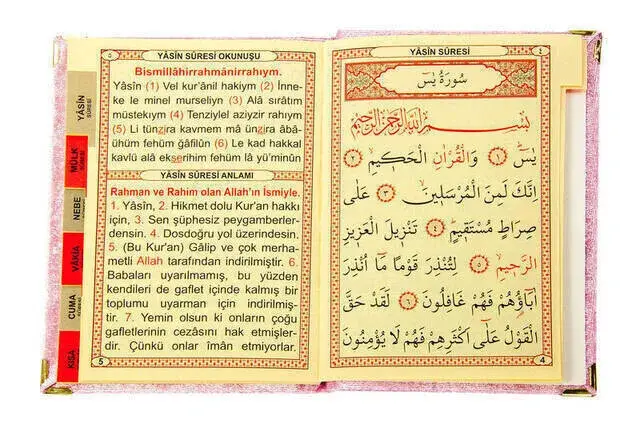 YÂSÎN SÛRESİ
MÜLK
NEBE
VÂKIA
CUMA
KISA
٥
YÂSÎN SÛRESİ OKUNUŞU
Bismillâhirrahmânirrahıym.
Yâsîn (1) Vel kur'ânil hakiym (2) İnne-
ke le minel murseliyn (3) Alâ sırâtım
müstekıym (4) Tenziylel aziyzir rahıym
(5) Li tünzira kavmem mâ ünzira âbâ-
ühüm fehüm ğâfilûn (6) Le kad hakkal
kavlü alâ ekserihim fehüm lâ yü'minûn
YÂSÎN SÛRESİ ANLAMI
Rahman ve Rahim olan Allah'ın İsmiyle.
1. Yâsîn, 2. Hikmet dolu Kur'an hakkı
için, 3. Sen şüphesiz peygamberler-
densin. 4. Dosdoğru yol üzerindesin.
5. (Bu Kur'an) Gâlip ve çok merha-
metli Allah tarafından indirilmiştir. 6.
Babaları uyarılmamış, bu yüzden
kendileri de gaflet içinde kalmış bir
toplumu uyarman için indirilmiş-
tir. 7. Yemin olsun ki onların çoğu
gafletlerinin cezasını hak etmişler-
dir. Çünkü onlar îman etmiyorlar.
5
YÂSÎN SÛRESİ
٤
سُورَةُ يٰسٓ
بِسْمِ اللّٰهِ الرَّحْمٰنِ الرَّحِيمِ
يٰسٓ ١ وَالْقُرْاٰنِ الْحَكِيمِ ٢
اِنَّكَ لَمِنَ الْمُرْسَلِينَ ٣ عَلٰى
صِرَاطٍ مُسْتَقِيمٍ ٤ تَنْزِيلَ الْعَزِيزِ
الرَّحِيمِ ٥ لِتُنْذِرَ قَوْمًا مَٓا اُنْذِرَ
اٰبَٓاؤُهُمْ فَهُمْ غَافِلُونَ ٦ لَقَدْ حَقَّ
الْقَوْلُ عَلٰٓى اَكْثَرِهِمْ فَهُمْ لَا يُؤْمِنُونَ
4